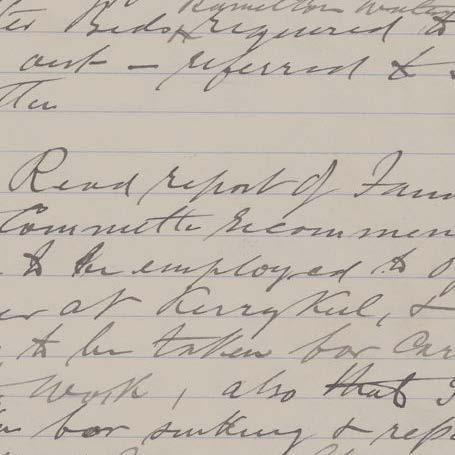 Hamilton Water
ter Beds required to
out — referred to
ttee
Read report of
Committee recommen
to be employed to
er at Kerrykeel, &
to be taken for
Work, also that
for sinking & rep